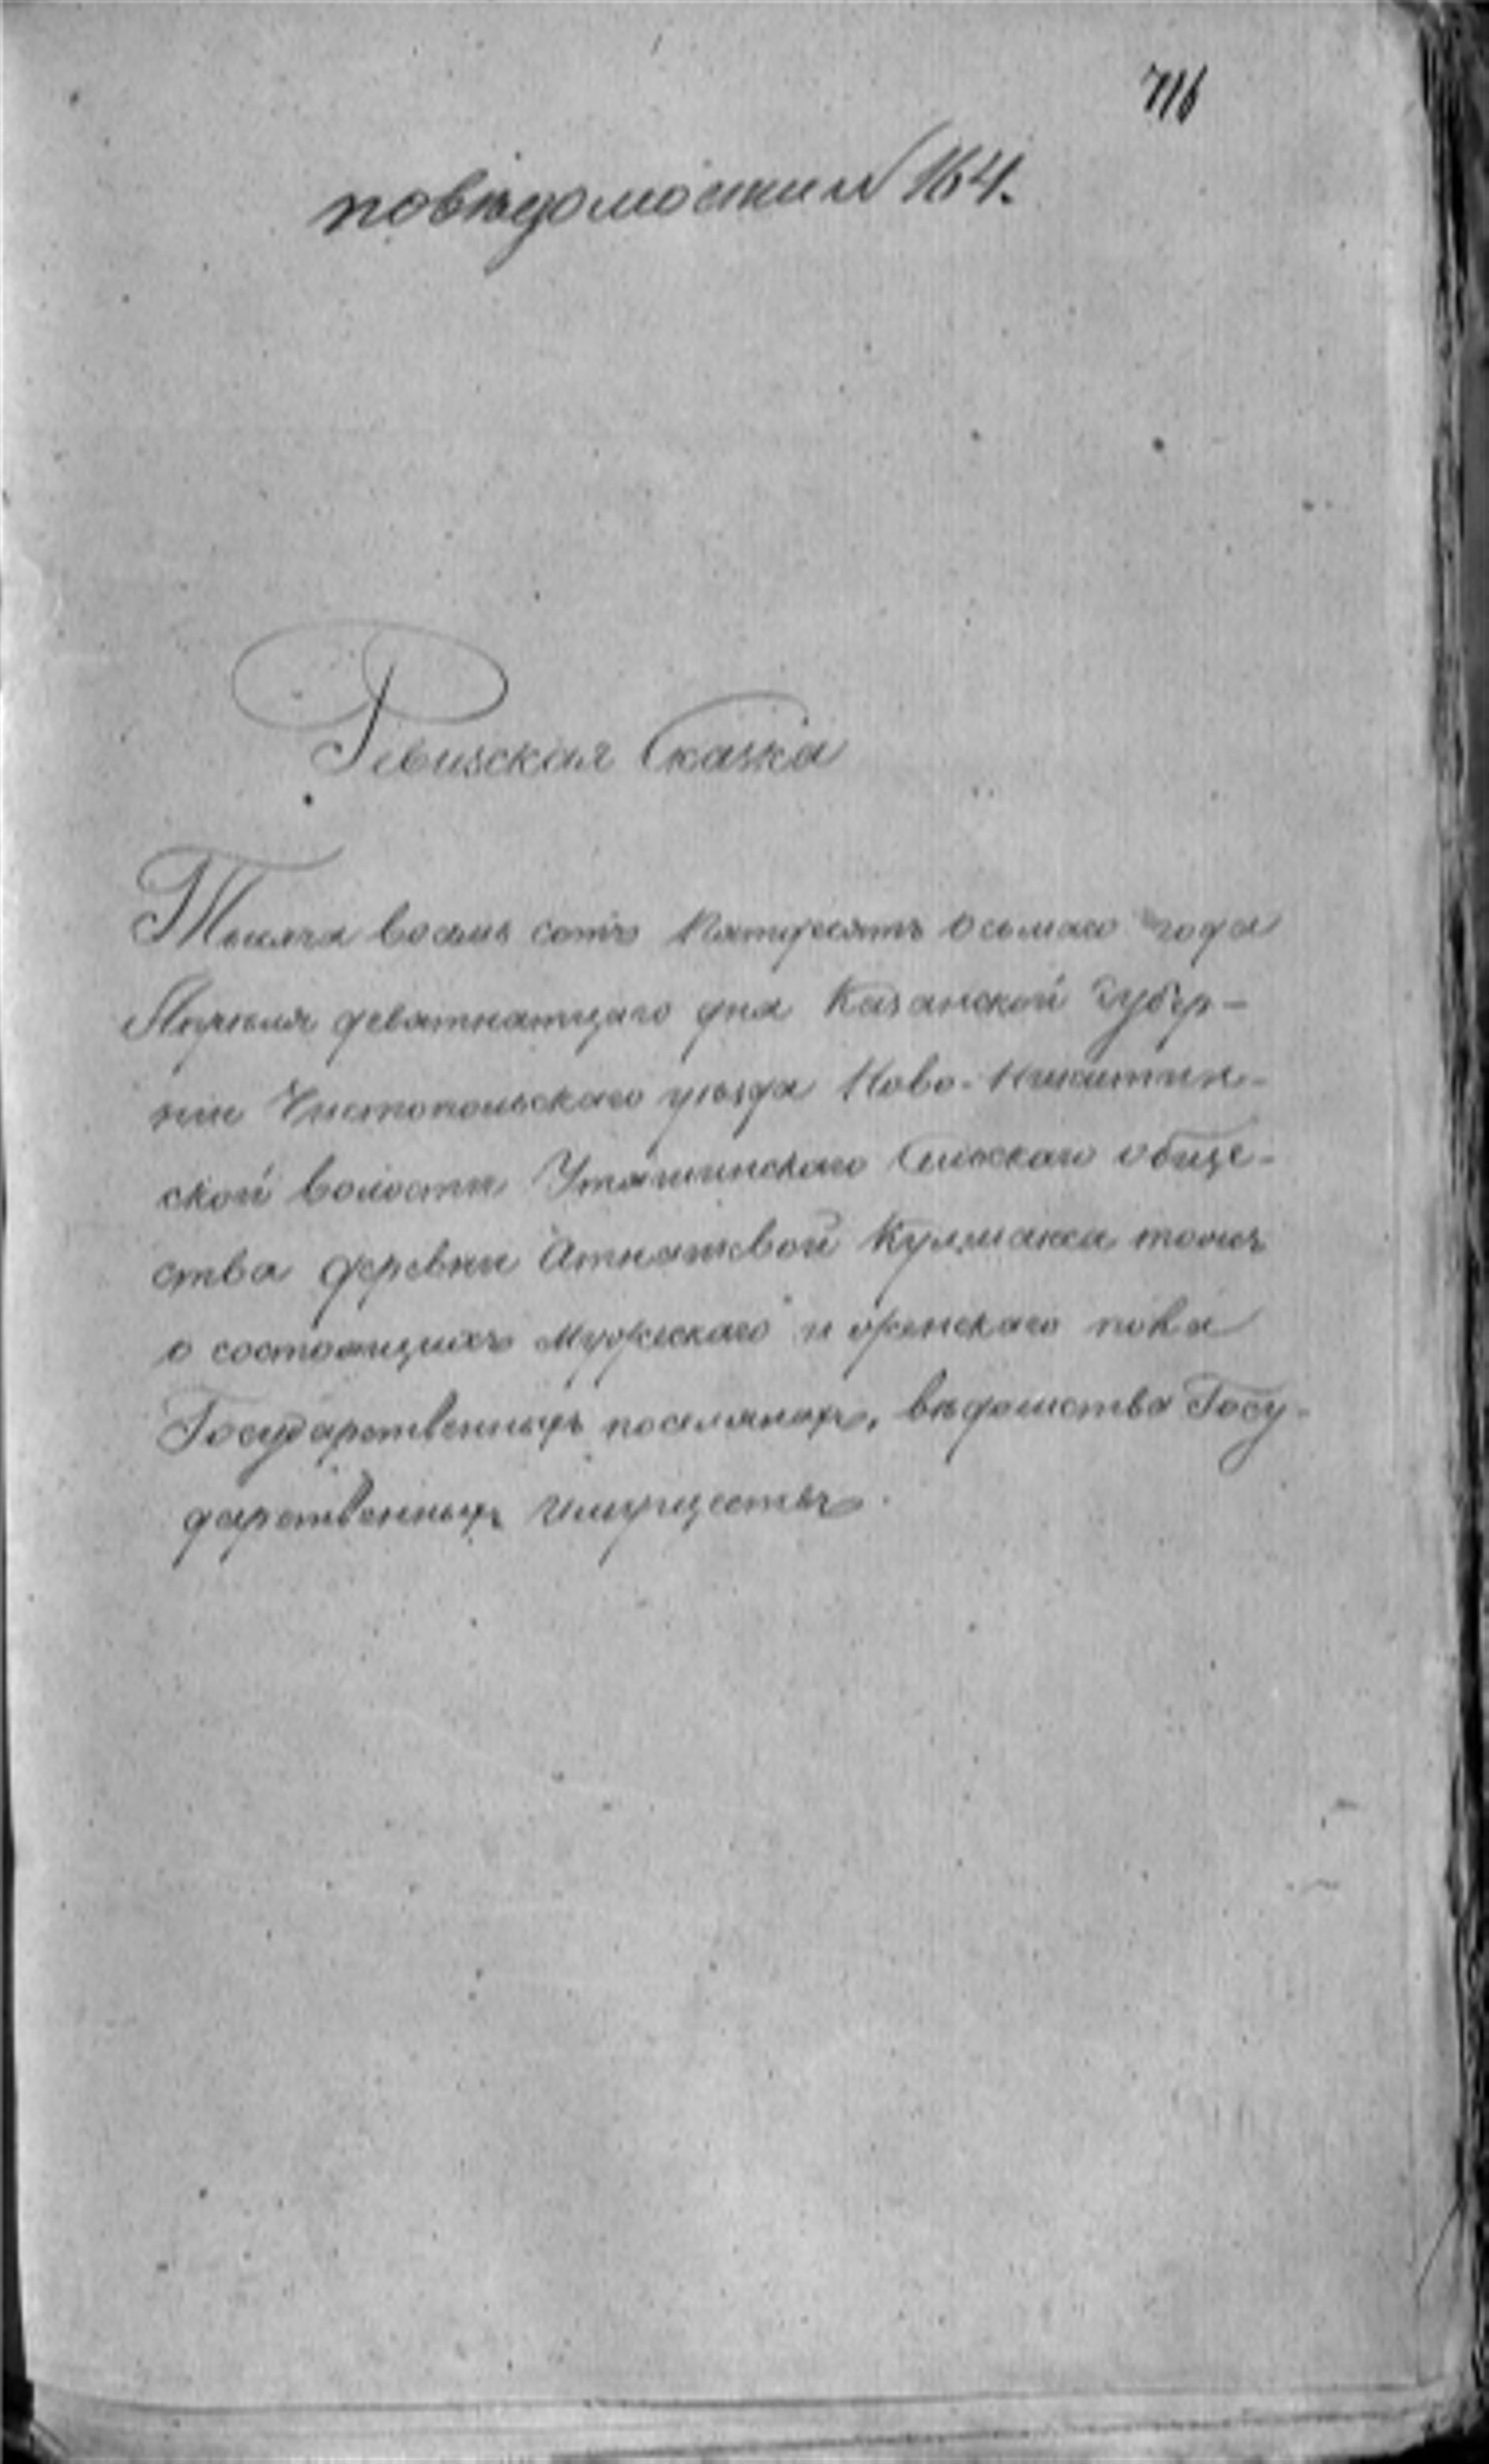 716
по вѣдомости № 164.
Ревизская Сказка
Тысяча восемь сотъ пятьдесятъ осьмаго года
Апрѣля девятнатцаго дня Казанской Губер-
ніи Чистопольскаго уѣзда Ново-Никитин-
ской волости Утяшинскаго Сельскаго обще-
ства деревни
о состоящихъ мужескаго и женскаго пола
Государственныхъ поселянахъ, вѣдомства Госу-
дарственныхъ Имуществъ.